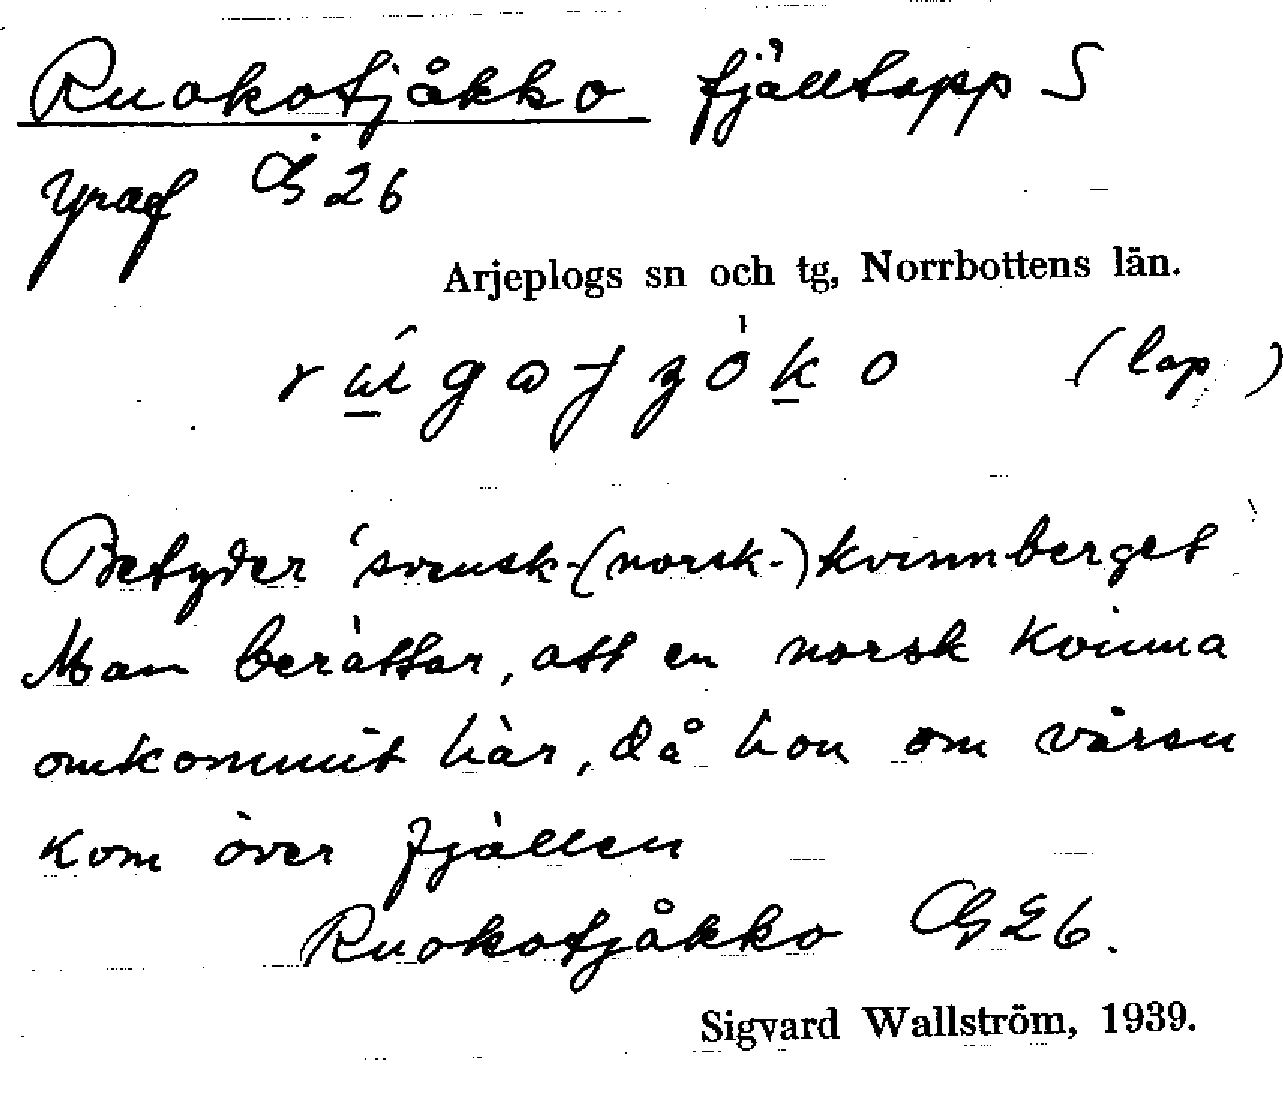 Ruokotjåkko fjälltopp S
Yraf G 26
Arjeplogs sn och tg, Norrbottens län.
(lap)
Betyder 'svensk-(norsk-)kvinnberget'
Man berättar, att en norsk kvinna
omkommit här, då hon om våren
kom över fjällen
Ruokotjåkko G26.
Sigvard Wallström, 1939.